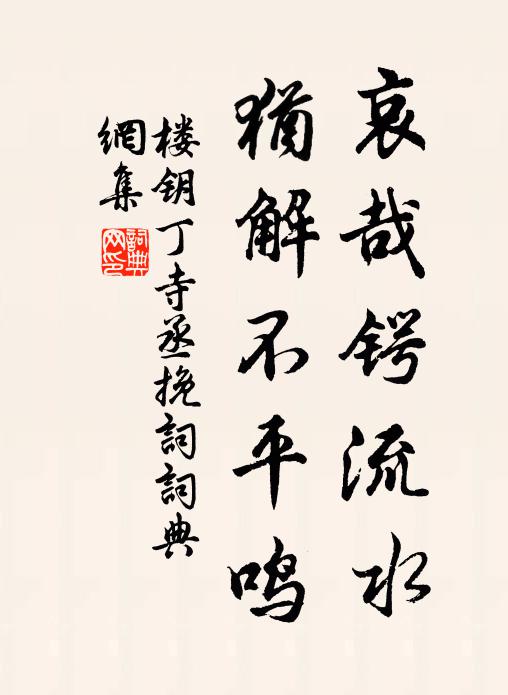 哀哉锷流水
犹解不平鸣
楼钥丁寺丞挽詞詞典
網集
詞典网印